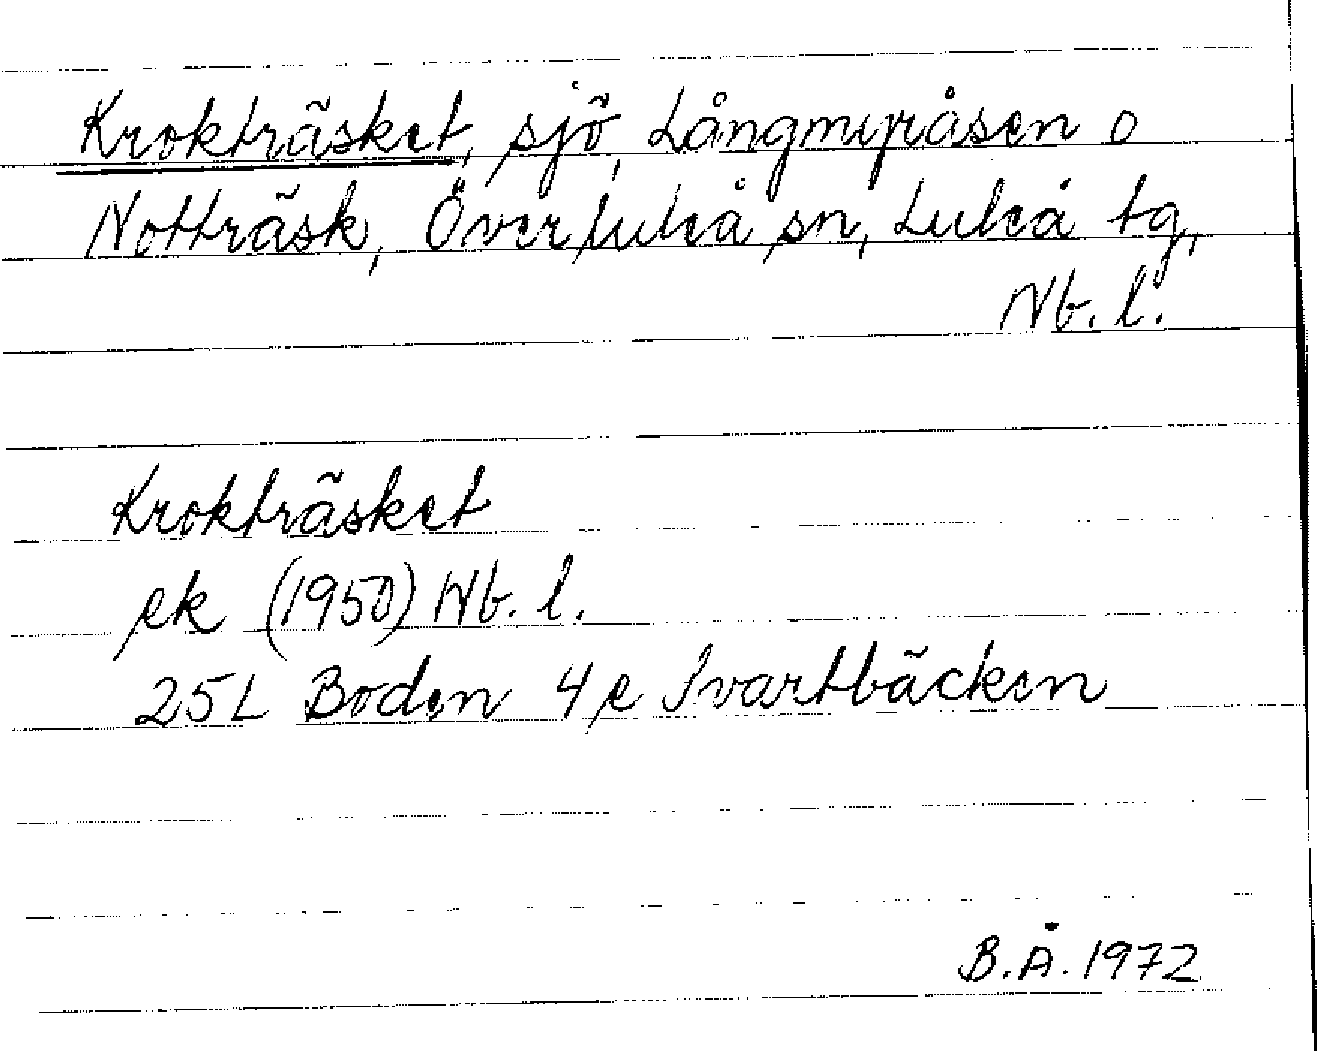 Krokträsket, sjö, Långmyråsen o
Notträsk, Överluleå sn, Luleå tg,
Nb. l.
Krokträsket
ek (1950) Nb. l.
25L Boden 4e Svartbäcken
B.Å. 1972